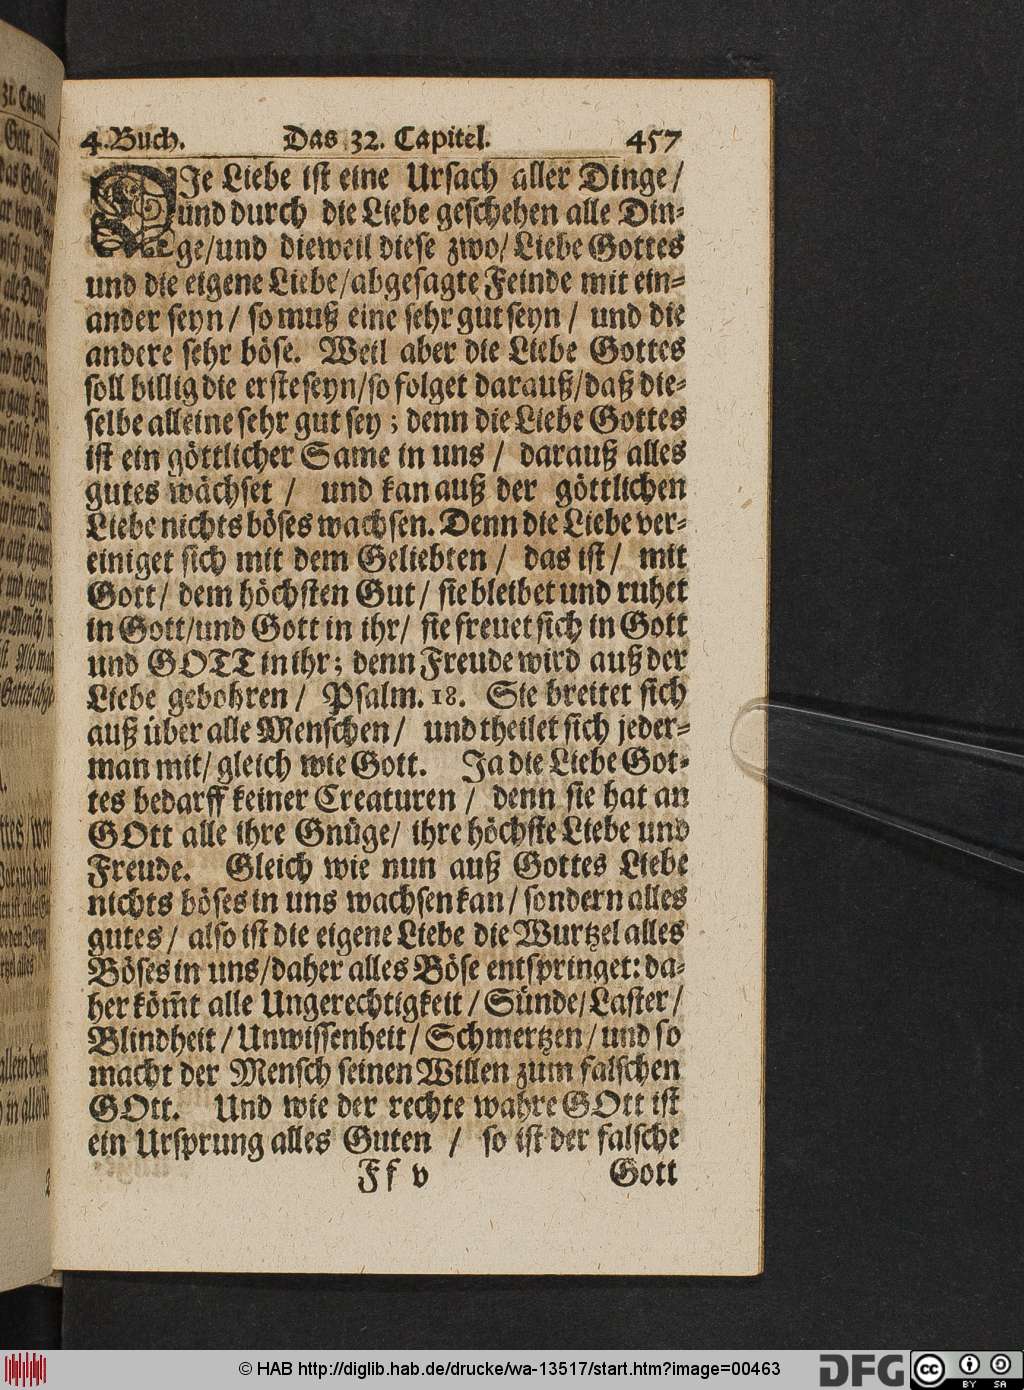 4. Buch. Das 32. Capitel. 457
DIe Liebe ist eine Ursach aller Dinge/
und durch die Liebe geschehen alle Din-
ge/und dieweil diese zwo/ Liebe Gottes
und die eigene Liebe/abgesagte Feinde mit ein-
ander seyn/ so muß eine sehr gut seyn/ und die
andere sehr böse. Weil aber die Liebe Gottes
soll billig die erste seyn/so folget darauß/daß die-
selbe alleine sehr gut sey; denn die Liebe Gottes
ist ein göttlicher Same in uns/ darauß alles
gutes wächset/ und kan auß der göttlichen
Liebe nichts böses wachsen. Denn die Liebe ver-
einiget sich mit dem Geliebten/ das ist/ mit
Gott/ dem höchsten Gut/ sie bleibet und ruhet
in Gott/und Gott in ihr/ sie freuet sich in Gott
und GOTT in ihr; denn Freude wird auß der
Liebe gebohren/ Psalm. 18. Sie breitet sich
auß über alle Menschen/ und theilet sich jeder-
man mit/ gleich wie Gott. Ja die Liebe Got-
tes bedarff keiner Creaturen/ denn sie hat an
GOtt alle ihre Gnüge/ ihre höchste Liebe und
Freude. Gleich wie nun auß Gottes Liebe
nichts böses in uns wachsen kan/ sondern alles
gutes/ also ist die eigene Liebe die Wurtzel alles
Böses in uns/daher alles Böse entspringet: da-
her köm̃t alle Ungerechtigkeit/ Sünde/ Laster/
Blindheit/ Unwissenheit/ Schmertzen/ und so
macht der Mensch seinen Willen zum falschen
GOtt. Und wie der rechte wahre GOtt ist
ein Ursprung alles Guten/ so ist der falsche
Ff v Gott
© HAB http://diglib.hab.de/drucke/wa-13517/start.htm?image=00463
DFG cc BY SA